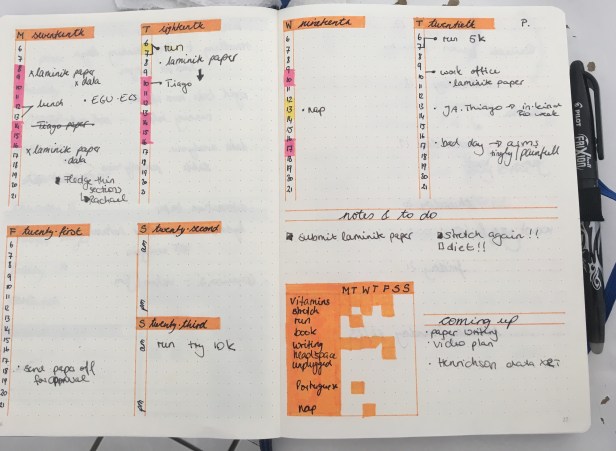 M seventeenth
6
7
8
9
10
11
12
13
14
15
16
17
18
19
20
21
x laminik paper
x data
lunch
• EGU - ECS
Tiago paper
x laminik paper
• data
Pledge thin
section
Rachael
T eighteenth
6
7
8
9
10
11
12
13
14
15
16
17
18
19
20
21
run
• laminik paper
Tiago
W nineteenth
6
7
8
9
10
11
12
13
14
15
16
17
18
19
20
21
• nap
T twentieth
P.
6
7
8
9
10
11
12
13
14
15
16
17
18
19
20
21
run 5k
work office
• laminik paper
• J.A. Thiago →
• bad day → arms
tingly/painful!
notes & to do
submit laminik paper
stretch again!!
diet!!
F twenty-first
6
7
8
9
10
11
12
13
14
15
16
17
18
19
20
21
• send papa off
for approval
S twenty-second
am
pm
S twenty-third
am
pm
run try 10k
M T W T F S S
Vitamins
stretch
run
book
writing
headspace
unplugged
Portuguese
nap
coming up
• paper writing
• video plan
• Henrickson data XRT
PILOT
FriXion